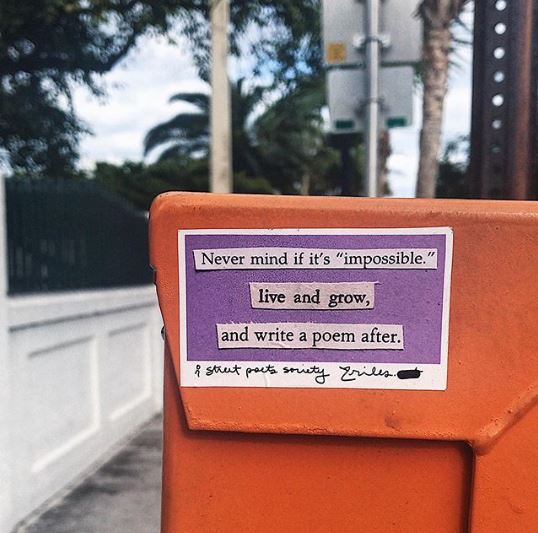 Never mind if it's "impossible."
live and grow,
and write a poem after.
street poets society